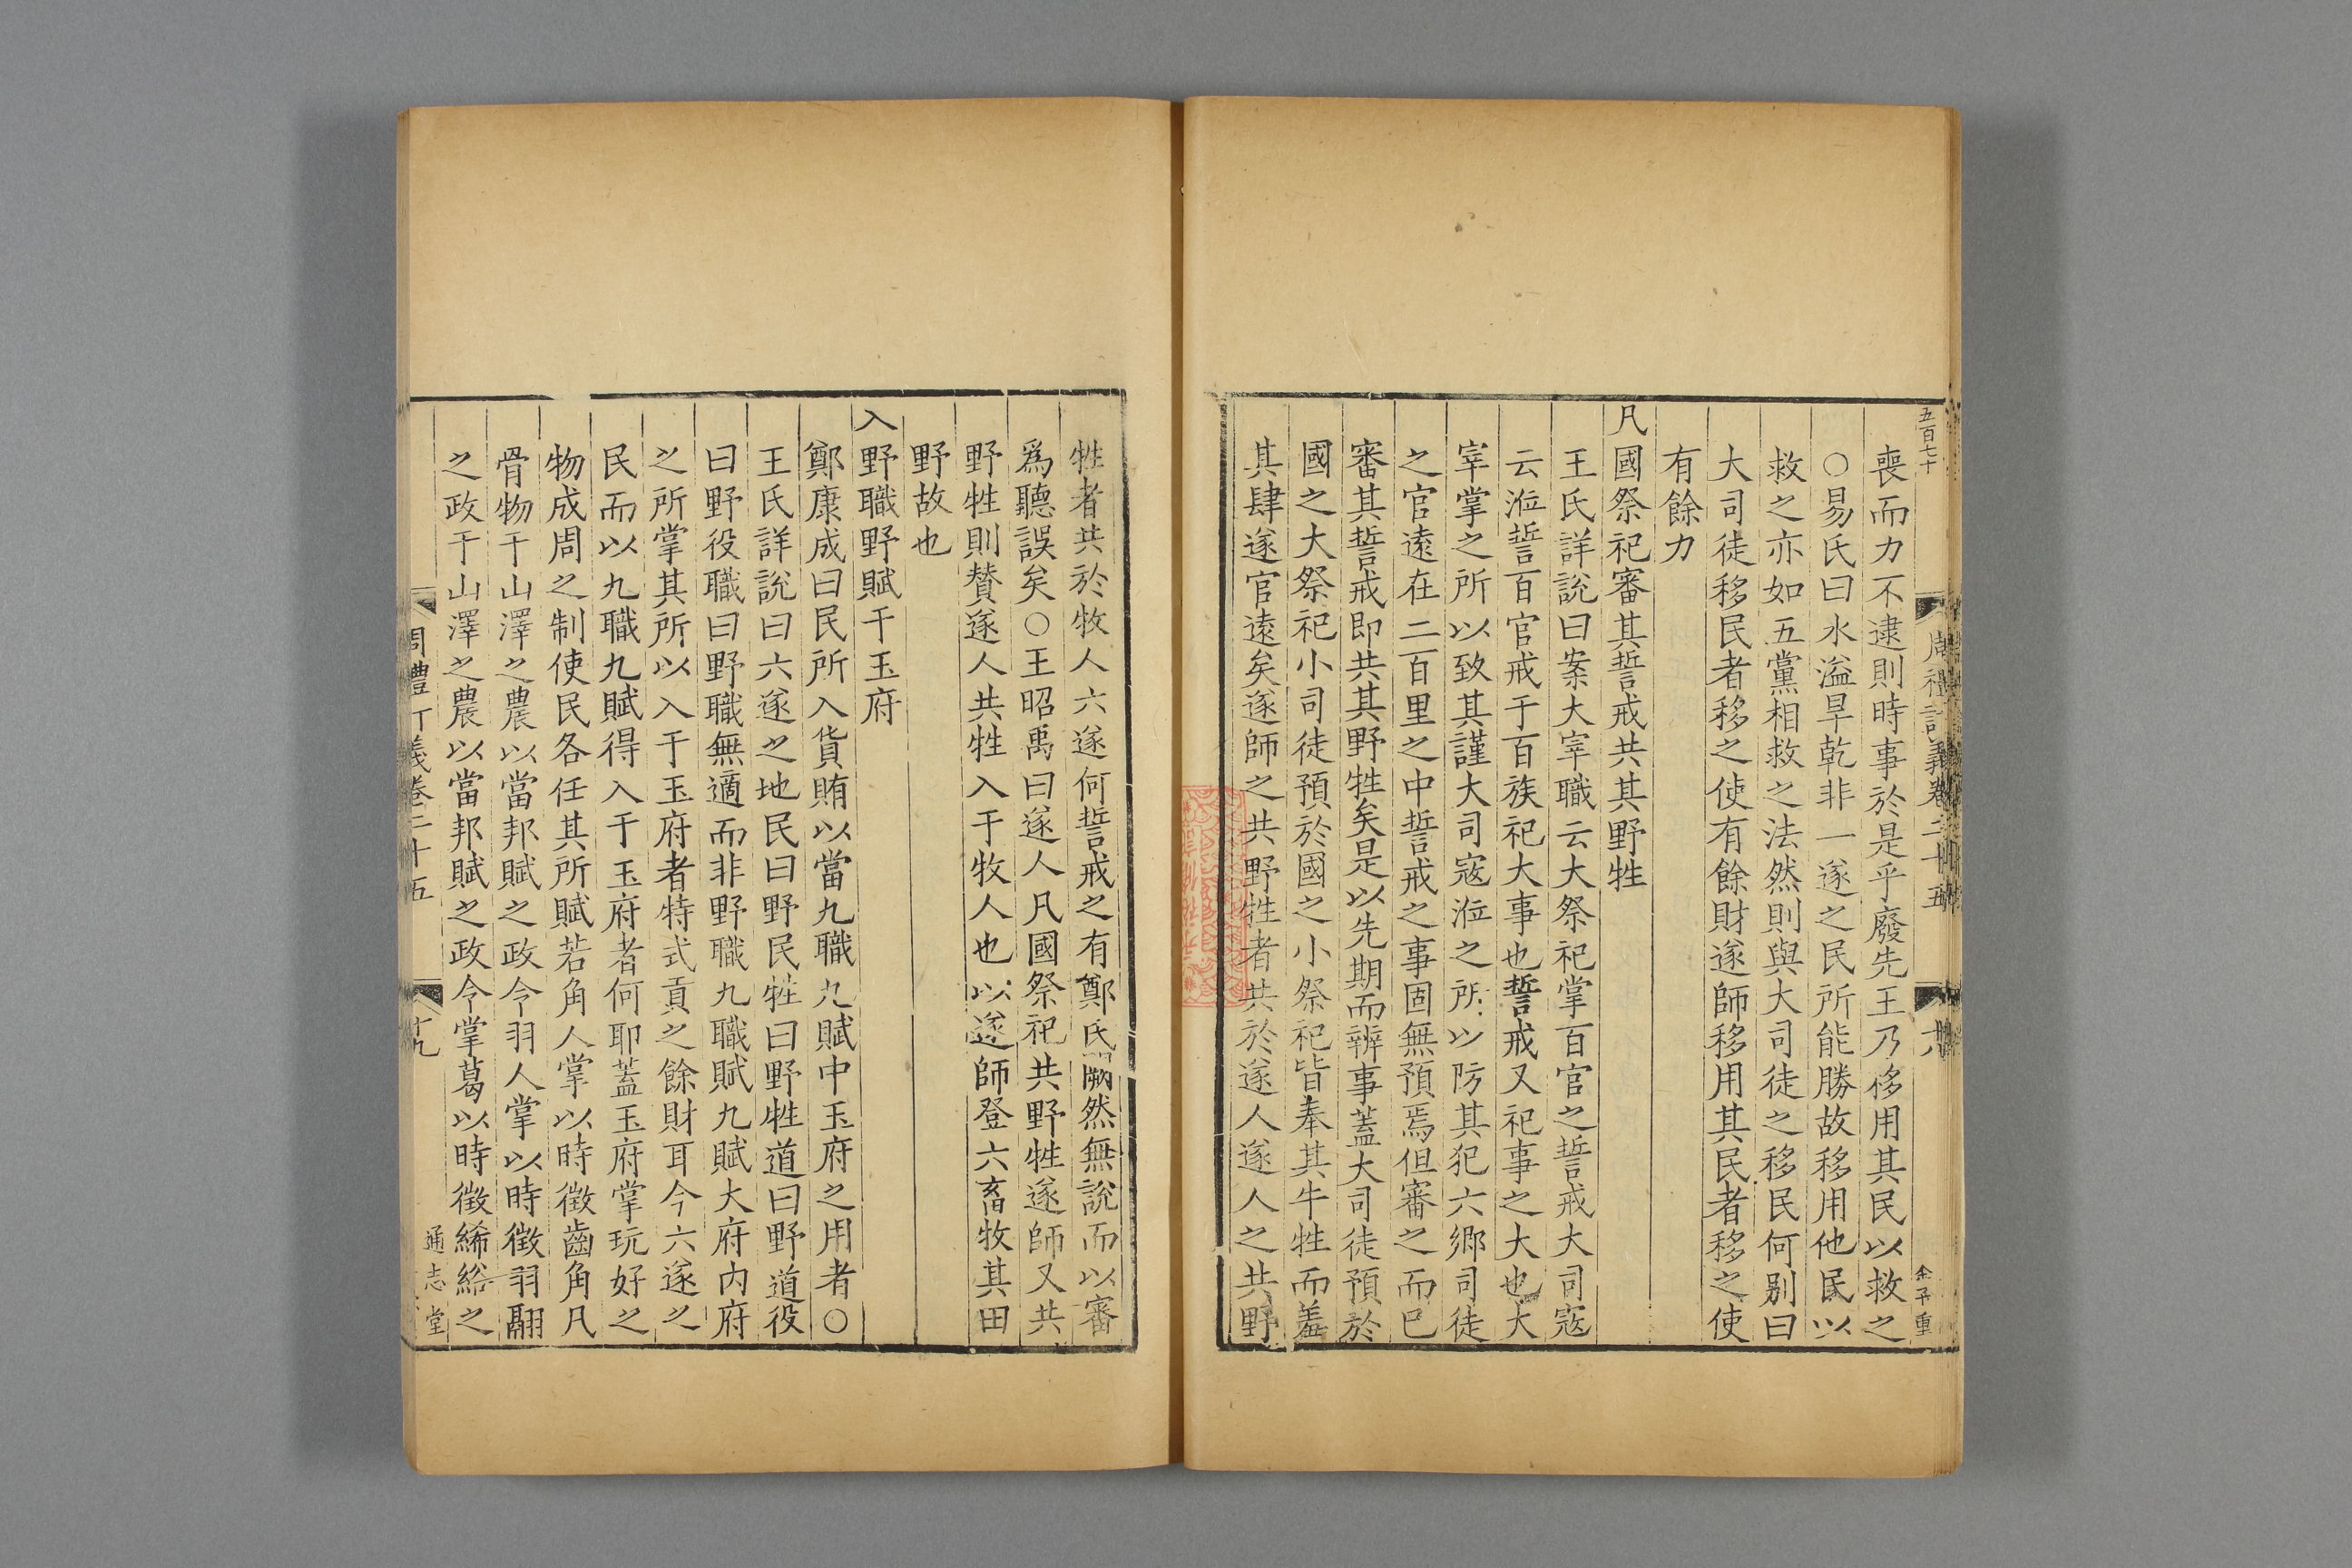 五百七十
周禮訂義卷二十五
十八
余子重
喪而力不逮則時事於是乎廢先王乃移用其民以救之
○易氏曰水溢旱乾非一遂之民所能勝故移用他民以
救之亦如五黨相救之法然則與大司徒之移民何别曰
大司徒移民者移之使有餘財遂師移用其民者移之使
有餘力
凡國祭祀審其誓戒共其野牲
王氏詳說曰案大宰職云大祭祀掌百官之誓戒大司寇
云涖誓百官戒于百族祀大事也誓戒又祀事之大也大
宰掌之所以致其謹大司寇涖之所以防其犯六鄉司徒
之官遠在二百里之中誓戒之事固無預焉但審之而巳
審其誓戒即共其野牲矣是以先期而辨事蓋大司徒預於
國之大祭祀小司徒預於國之小祭祀皆奉其牛牲而羞
其肆遂官遠矣遂師之共野牲者共於遂人遂人之共野
牲者共於牧人六遂何誓戒之有鄭氏闕然無說而以審
爲聽誤矣○王昭禹曰遂人凡國祭祀共野牲遂師又共
野牲則賛遂人共牲入于牧人也以遂師登六畜牧其田
野故也
入野職野賦于玉府
鄭康成曰民所入貨賄以當九職九賦中玉府之用者○
王氏詳說曰六遂之地民曰野民牲曰野牲道曰野道役
曰野役職曰野職無適而非野職九職賦九賦大府內府
之所掌其所以入于玉府者特式貢之餘財耳今六遂之
民而以九職九賦得入于玉府者何耶蓋玉府掌玩好之
物成周之制使民各任其所賦若角人掌以時徵齒角凡
骨物于山澤之農以當邦賦之政令羽人掌以時徵羽翮
之政于山澤之農以當邦賦之政令掌葛以時徵絺綌之
周禮訂義卷二十五
十九
通志堂